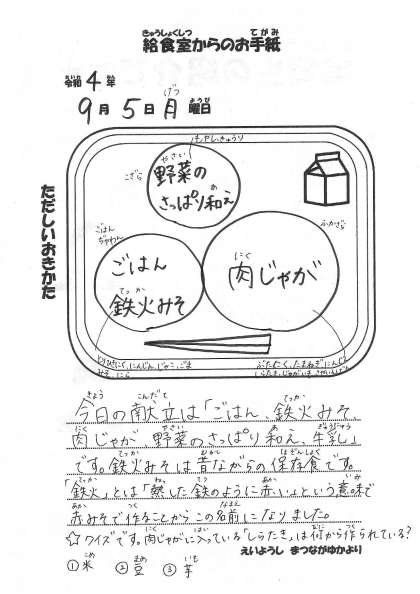 給食室からのお手紙
令和4年
9月5日月曜日
もやし、きゅうり
野菜の
さっぱり和え
こざら
ごはん
ぢゃわん
ふかざら
ごはん
鉄火みそ
肉じゃが
ただしいおきかた
とりひきにく、にんじん、じゃこ、ごま
みそ、にら
ぶたにく、たまねぎ、にんじん
しらたき、じゃがいも、さやいんげん
今日の献立は「ごはん、鉄火みそ、
肉じゃが 野菜のさっぱり和え、牛乳」
です。鉄火みそは昔ながらの保存食です。
「鉄火」とは「熱した鉄のように赤い」という意味で
赤みそで作ることからこの名前になりました。
☆クイズです。肉じゃがに入っている「しらたき」は何から作られている?
えいようし まつながゆかより
①米 ②豆 ③芋